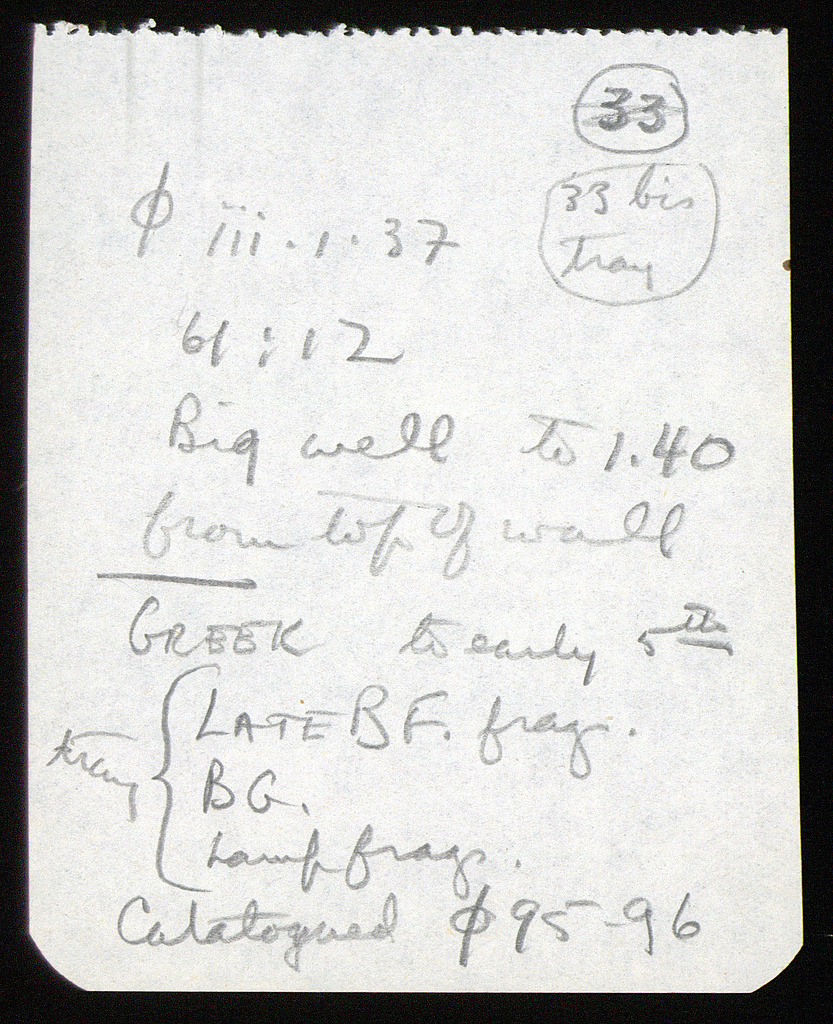 33
33 bis
tray
φ iii.1.37
61:12
Big well to 1.40
from top of wall
GREEK to early 5th
tray
LATE BF. frags.
BG.
Lamp frags.
Catalogued φ 95-96